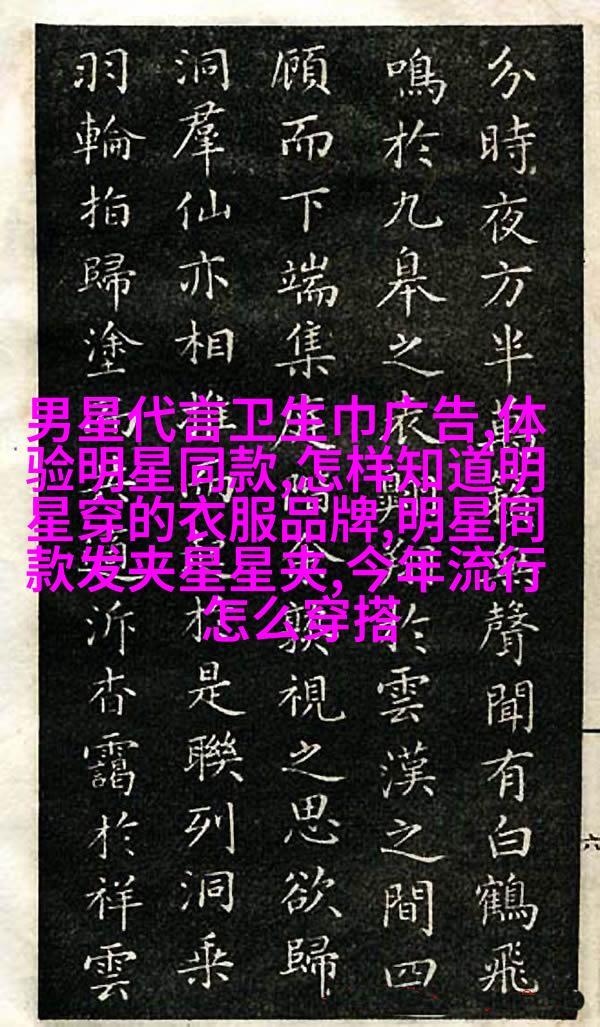 男星代言卫生巾广告,体
验明星同款,怎样知道明
星穿的衣服品牌,明星同
款发夹星星夹,今年流行
怎么穿搭
分時夜方半聲聞有白鶴飛
鳴於九皋之衣於雲漢之間四
顧而下端集庭視之思欲歸
洞羣仙亦相是聯列洞乘
羽輪拍歸塗泝杳靄於祥雲
六